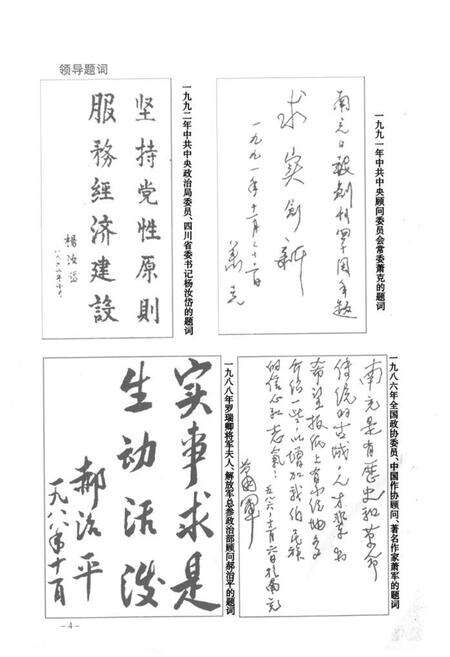 领导题词
南充日报创刊四十周年题
求实创新
一九九一年十一月二十一日
萧克
一九九一年中共中央顾问委员会常委萧克的题词
坚持党性原则
服務經济建設
杨汝岱
一九九二年中共中央政治局委员、四川省委书记杨汝岱的题词
南充是有歷史和革命
传统的古城，人才輩出
希望报纸上有系统地多
介绍一些，以增加我伯民族
的信心和志氣！
一九八六年全国政协委员、中国作协顾问、著名作家萧军的题词
实事求是
生动活泼
郝治平
一九八八年十一月
一九八八年罗瑞卿将军夫人、解放军总参政治部顾问郝治平的题词
－4－